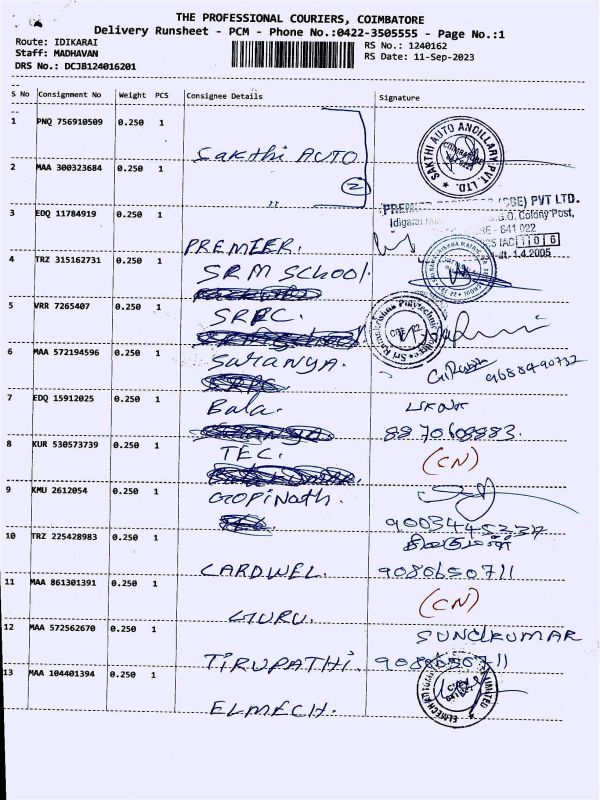 THE PROFESSIONAL COURIERS, COIMBATORE
Delivery Runsheet - PCM - Phone No.:0422-3505555 - Page No.:1
Route: IDIKARAI RS No.: 1240162
Staff: MADHAVAN RS Date: 11-Sep-2023
DRS No.: DCJB124016201
S No Consignment No Weight PCS Consignee Details Signature
1 PNQ 756910509 0.250 1
Sakthi AUTO
SAKTHI AUTO ANCILLARY PVT. LTD.
2 MAA 300323684 0.250 1
2
3 EDQ 11784919 0.250 1
(CBE) PVT LTD.
S.G.O. Colony Post,
641 022
1 0 6
dt. 1.4.2005
PREMIER.
4 TRZ 315162731 0.250 1
SRM SCHOOL.
5 VRR 7265407 0.250 1
SRPC.
Sri Ramakrishna Polytechnic College
6 MAA 572194596 0.250 1
SARANYA.
9688490732
7 EDQ 15912025 0.250 1
Bala.
8870608883.
8 KUR 530573739 0.250 1
TEC.
(CN)
9 KMU 2612054 0.250 1
GOPINATH.
10 TRZ 225428983 0.250 1
CARDWEL. 9080650711
11 MAA 861301391 0.250 1
GURU.
(CN)
12 MAA 572562670 0.250 1
SUNILKUMAR
TIRUPATHI. 9080650711
13 MAA 104401394 0.250 1
ELMECH.